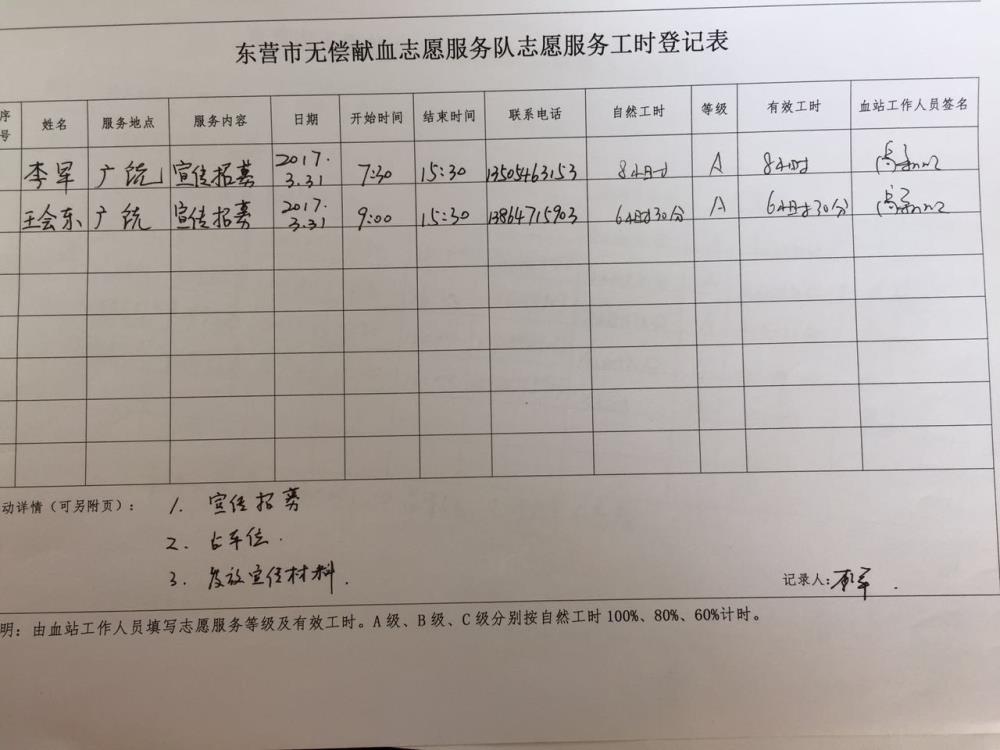 东营市无偿献血志愿服务队志愿服务工时登记表
序号 姓名 服务地点 服务内容 日期 开始时间 结束时间 联系电话 自然工时 等级 有效工时 血站工作人员签名
李军 广饶 宣传招募 2017.3.31 7:30 15:30 13505463153 8小时 A 8小时
王会东 广饶 宣传招募 2017.3.31 9:00 15:30 13864715903 6小时30分 A 6小时30分
动详情(可另附页): 1. 宣传招募
2. 占车位.
3. 发放宣传材料.
记录人:
明: 由血站工作人员填写志愿服务等级及有效工时。A级、B级、C级分别按自然工时100%、80%、60%计时。